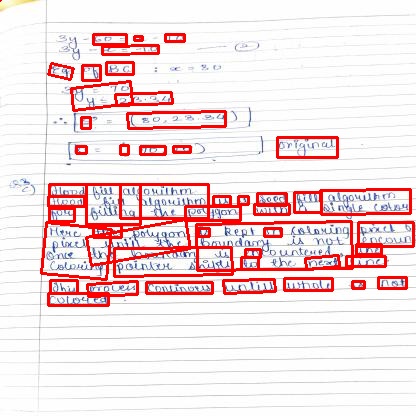 3y - 80 = - 10
3y - x = -10 (2)
Eq of BC : x = 80
3y = 70
y = 23.34
∴ = (80, 23.34)
original
Flood fill algorithm
Flood fill algorithm is a seed fill algorithm
for filling the polygon with a single color
Here polygon is kept on coloring pixel by
pixel until the boundary is not encoun
Once the boundary is encountered, the
coloring pointer shifts to the next line
This process continous untill whole is not
colored